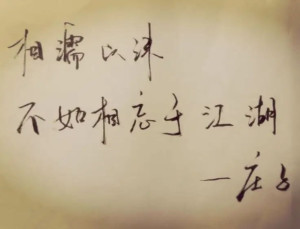 相濡以沫
不如相忘于江湖
一庄子